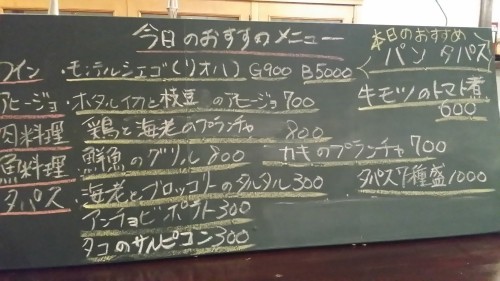 今日のおすすめメニュー
本日のおすすめ
パン タパス
ワイン ・モンテルシエゴ(リオハ) G900 B5000
牛モツのトマト煮
600
アヒージョ ・ホタルイカと枝豆のアヒージョ700
肉料理 鶏と海老のプランチャ 800
魚料理 鮮魚のグリル 800 カキのプランチャ 700
タパス ・海老とブロッコリーのタルタル300 タパス7種盛1000
アンチョビポテト300
タコのサルピコン300